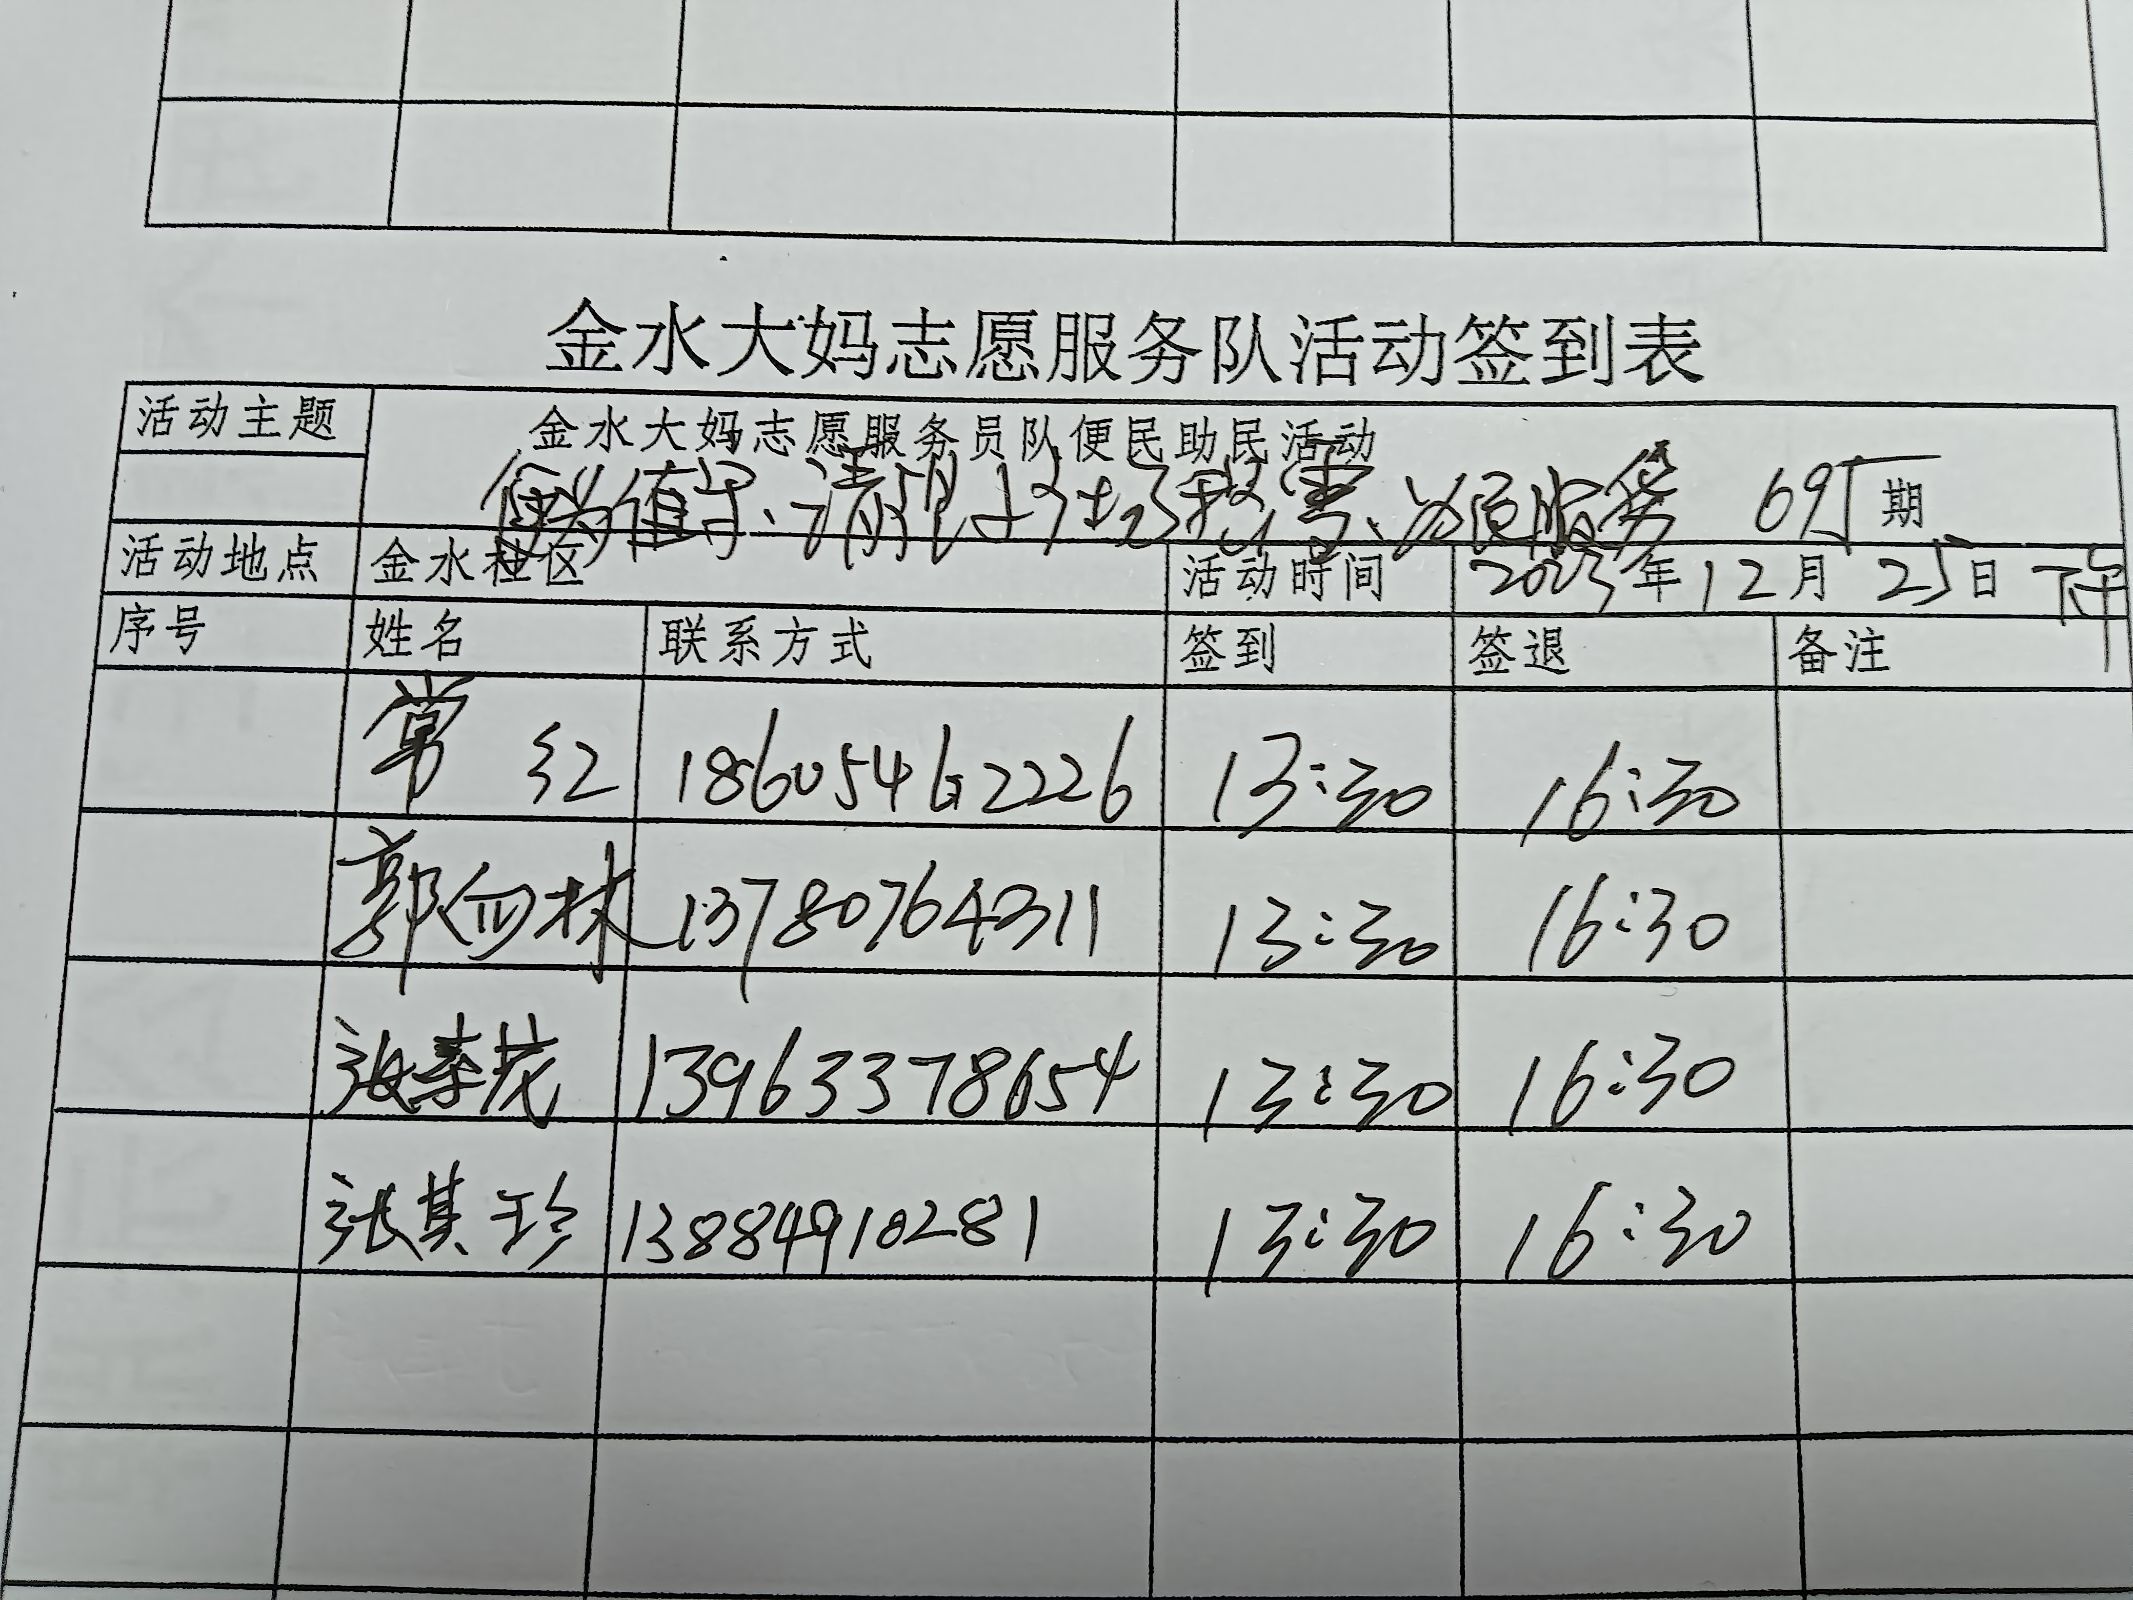 金水大妈志愿服务队活动签到表
活动主题 金水大妈志愿服务员队便民助民活动
值守、清 服务 695期
活动地点 金水社区 活动时间 2023年12月25日 下午
序号 姓名 联系方式 签到 签退 备注
常红 18605462226 13:30 16:30
郭 林 13780764311 13:30 16:30
张 茂 13963378654 13:30 16:30
张其珍 13884910281 13:30 16:30